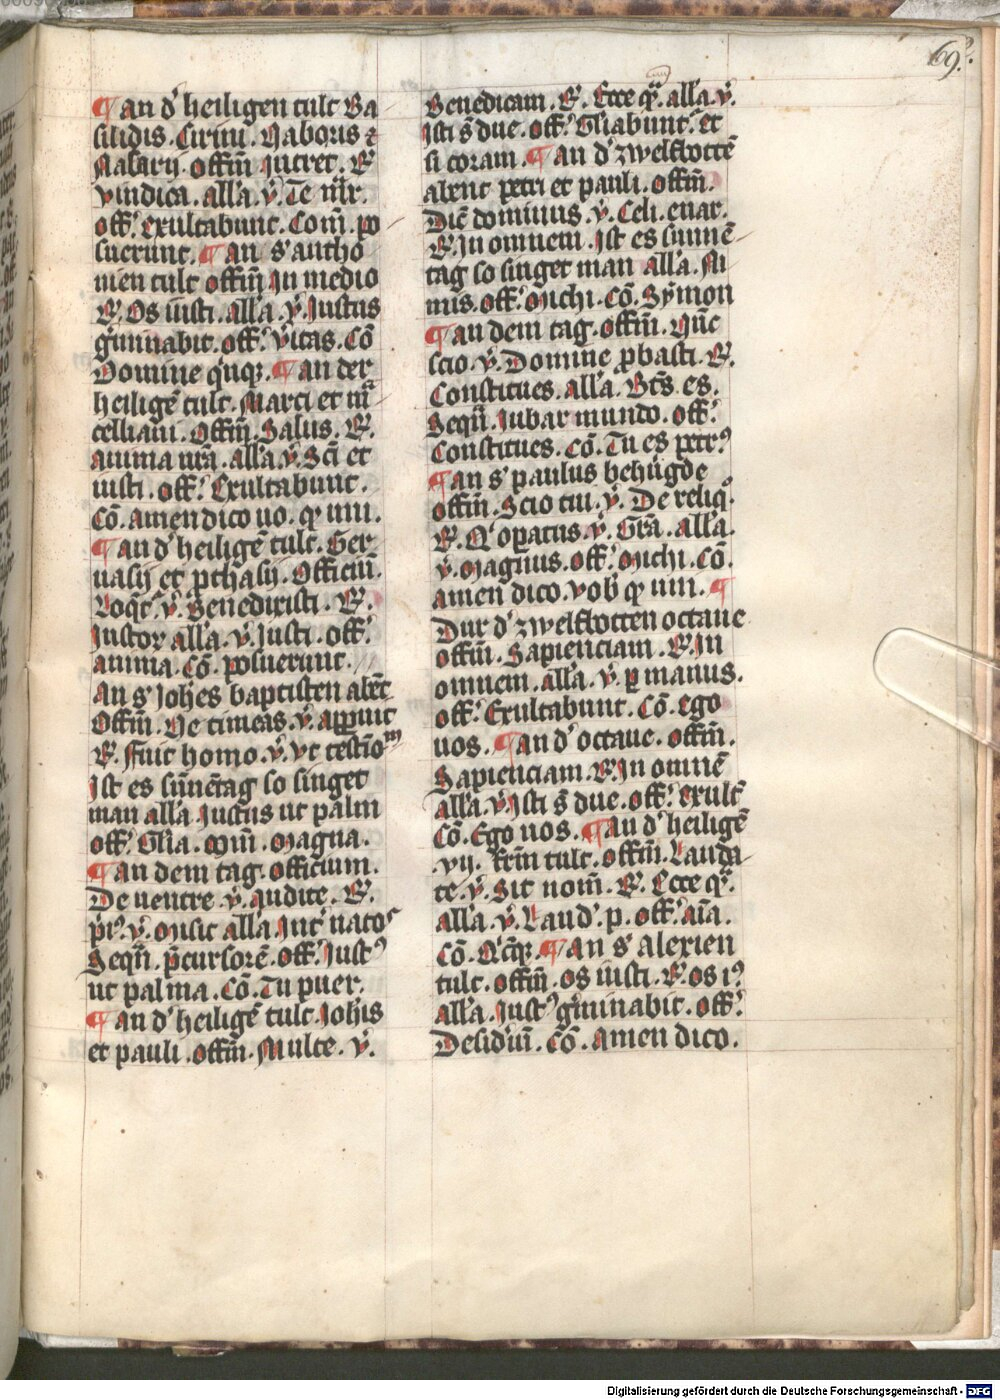 69.
¶ an d' heiligen tult Ba
silidis. Cirini. Naboris ⁊
Nasarij. offm̄ Intret. R̷
vindica. all'a. v̇. Te mr̄.
off. exultabunt. Com̄. po
suerunt. ¶ an s' antho
nien tult offm̄ In medio
R̷. Os iusti. all'a. v̇. Justus
g'minabit. off. v'itas. Cō
Domine q'nq3. ¶ an der
heiligē tult. Marci et m̄
celliani. Offm̄. Salus. R̷.
anima nr̄a. all'a. v̇. Sc̄i et
iusti. off. Exultabunt.
Cō. amen dico uo. qͩ uni.
¶ an d' heiligē tult. Ger
uasij et ꝓthasij. Officiū.
Loqr̄. v̇. Benedixisti. R̷.
Justoꝝ all'a. v̇. Justi. off.
anima. Cō. posuerunt.
an s' Joh̄es baptisten abēt
Offm̄. Ne timeas. v̇. apparuit
R̷. Fuit homo. v̇. vt testīoᵐ
Ist es sūnētag so singet
man all'a Justus ut palm
off. Gl̄ia. Cōm̄. Magna.
¶ an dem tag. officium.
De uentre. v̇. audite. R̷.
pri'. v̇. Misit all'a Int' natos
Seqū. p̄cursorē. off. Just'
ut palma. Cō. Tu puer.
¶ an d' heiligē tult. Joh̄is
et pauli. offm̄. Multe. v̇.
Benedicam. R̷. Ecce qͣ. all'a. v̇.
Isti s̄ due. off. Gl̄iabunt' et
si coram. ¶ an d' zwelfbottē
abent petri et pauli. offm̄.
Dic̄ dominus. v̇. Celi. enar.
R̷. In omnem. Ist es sunnē
tag so singet man all'a. Ni
mis. off. Michi. Cō. Symon
¶ an dem tag. offm̄. Nūc
scio. v̇. Domine ꝓbasti. R̷.
Constitues. all'a. Bt̄s es.
Seqū. Jubar mundo. off.
Constitues. Cō. Tu es petr'
¶ an s' paulus behügde
offm̄. Scio cui. v̇. De reliqͦ.
R̷. Q' op̱atus. v̇. Gr̄a. all'a.
v̇. Magnus. off. Michi. Cō.
amen dico. vob' qͩ uni. ¶
Dur d' zwelfbotten octaue
offm̄. Sapienciam. R̷. In
omnem. all'a. v̇. p̱ manus.
off. Exultabunt. Cō. Ego
uos. ¶ an d' octaue. offm̄.
Sapienciam. R̷. In omnē
all'a. v̇. Isti s̄ due. off. exult̄
Cō. Ego uos. ¶ an d' heiligē
.vij. fr̄m tult. offm̄. Lauda
te. v̇. Sit nom̄. R̷. Ecce qͣ.
all'a. v̇. Laud'. p. off. aīa.
Cō. Q'cūq3. ¶ an s' alexien
tult. offm̄. os iusti. R̷. os i'
all'a. Just' g'minabit. off.
Desid'iū. Cō. Amen dico.
Digitalisierung gefördert durch die Deutsche Forschungsgemeinschaft - DFG